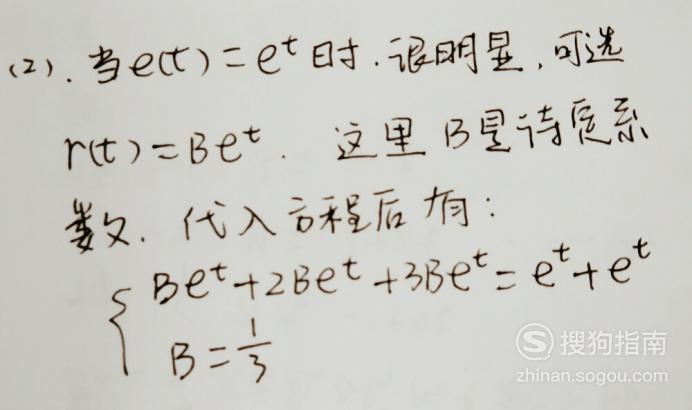 (2). 当e(t)=e^t时.很明显,可选
r(t)=Be^t. 这里B是待定系
数. 代入方程后有:
{ Be^t+2Be^t+3Be^t=e^t+e^t
B=1/3
搜狗指南
zhinan.sogou.com